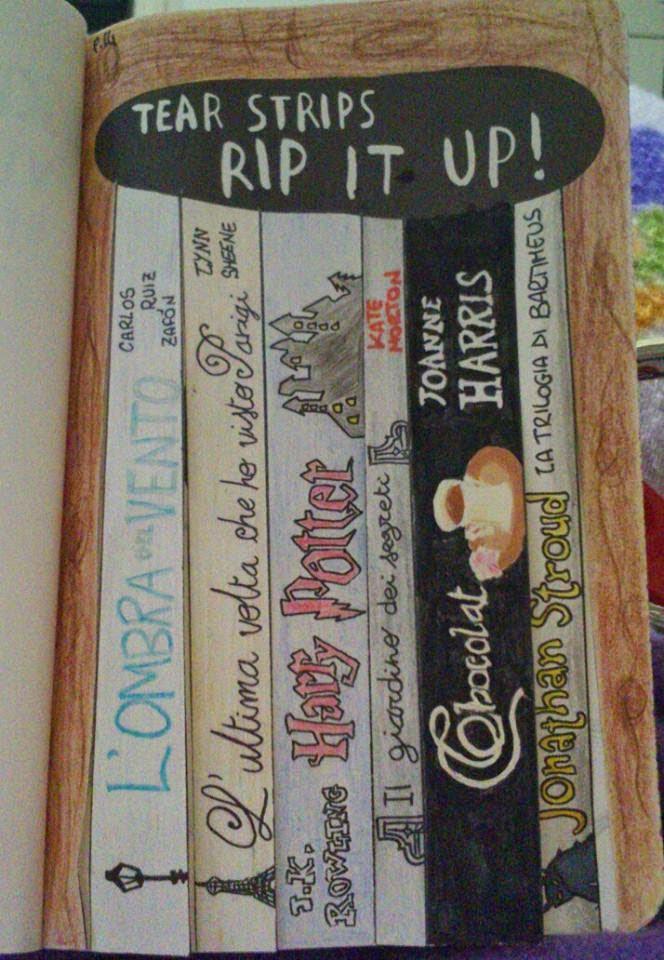 TEAR STRIPS
RIP IT UP!
CARLOS
RUIZ
ZAFÓN
L'OMBRA DEL VENTO
LYNN
SHEENE
L'ultima volta che ho visto Parigi
J.K.
ROWLING
Harry Potter
KATE
MORTON
Il giardino dei segreti
JOANNE
HARRIS
Chocolat
Jonathan Stroud LA TRILOGIA DI BARTIMEUS